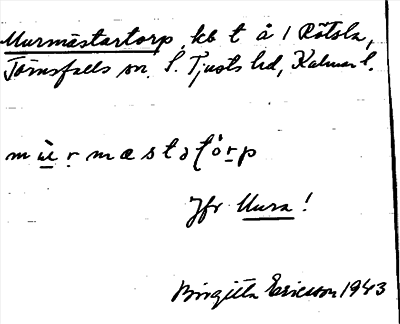 Murmästartorp, kb t å / Rötsla,
Törnsfalls sn. S. Tjusts hd, Kalmar l.
Jfr Mura!
Birgitta Ericsson 1943